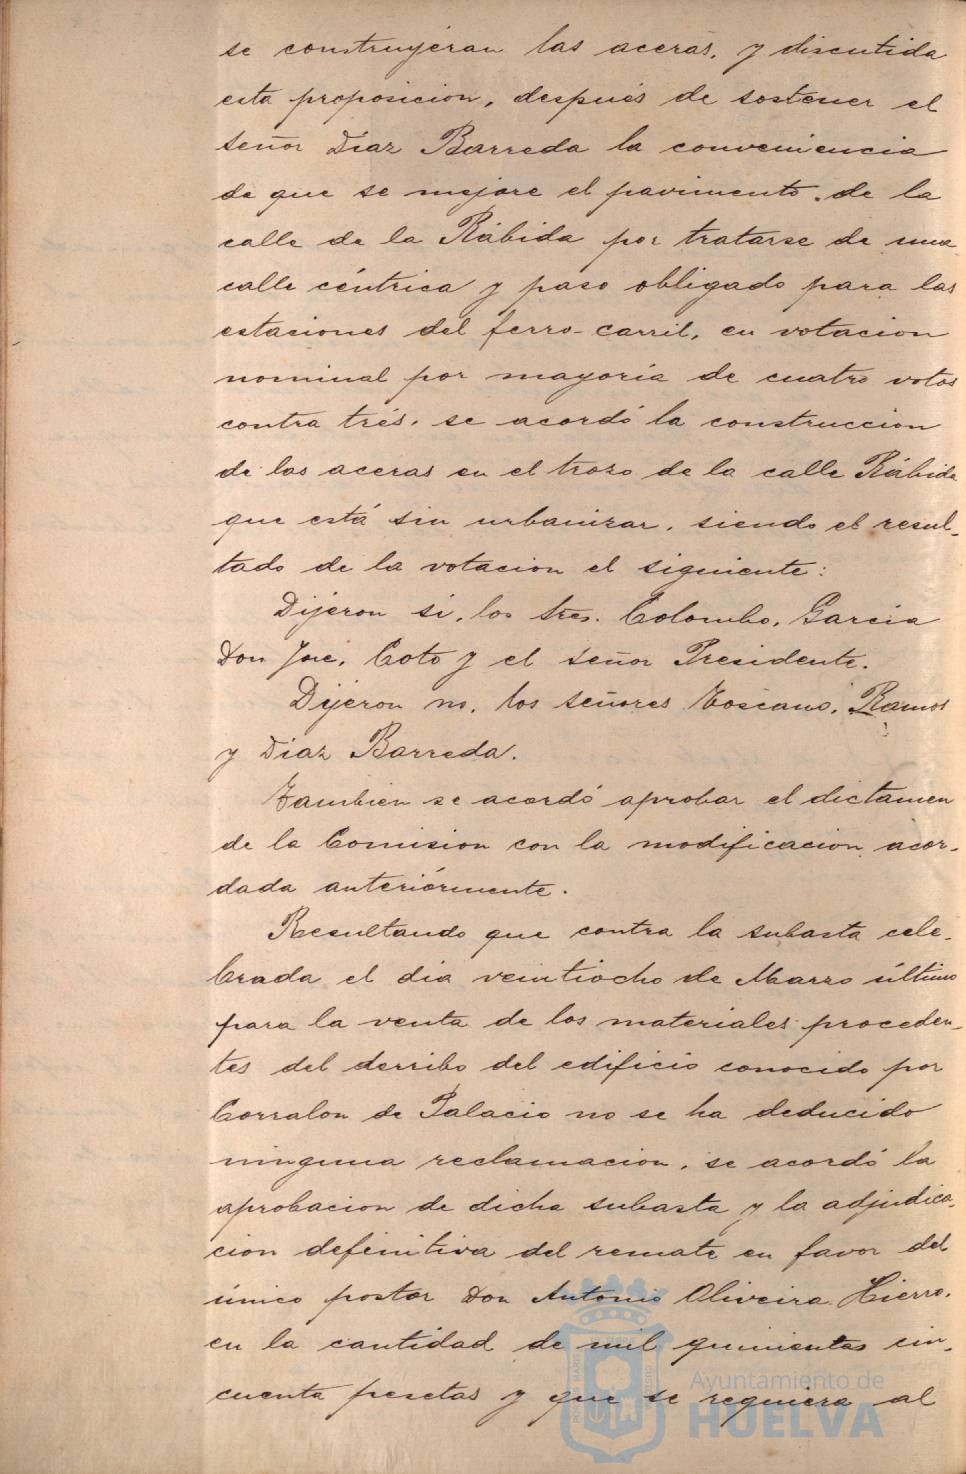 se construyéran las aceras, y discutida
esta proposicion, después de sostener el
señor Díaz Barreda la conveniencia
de que se mejore el pavimento de la
calle de la Rábida por tratarse de una
calle céntrica y paso obligado para las
estaciones del ferro-carril, en votacion
nominal por mayoría de cuatro votos
contra trés, se acordó la construccion
de las aceras en el trozo de la calle Rábida
que está sin urbanizar, siendo el resul-
tado de la votacion el siguiente:
Dijeron si, los Sres. Colombo, Garcia
Don José, Coto y el señor Presidente.
Dijeron no, los señores Toscano, Ramos
y Diaz Barreda.
Tambien se acordó aprobar el dictamen
de la Comision con la modificacion acor-
dada anteriórmente.
Resultando que contra la subasta cele-
brada el dia veintiocho de Marzo último
para la venta de los materiales proceden-
tes del derribo del edificio conocido por
Corralon de Palacio no se ha deducido
ninguna reclamacion, se acordó la
aprobacion de dicha subasta y la adjudica-
cion definitiva del remate en favor del
único postor Don Antonio Oliveira Hierro,
en la cantidad de mil quinientas cin-
cuenta pesetas y que se requiera al
Ayuntamiento de
HUELVA